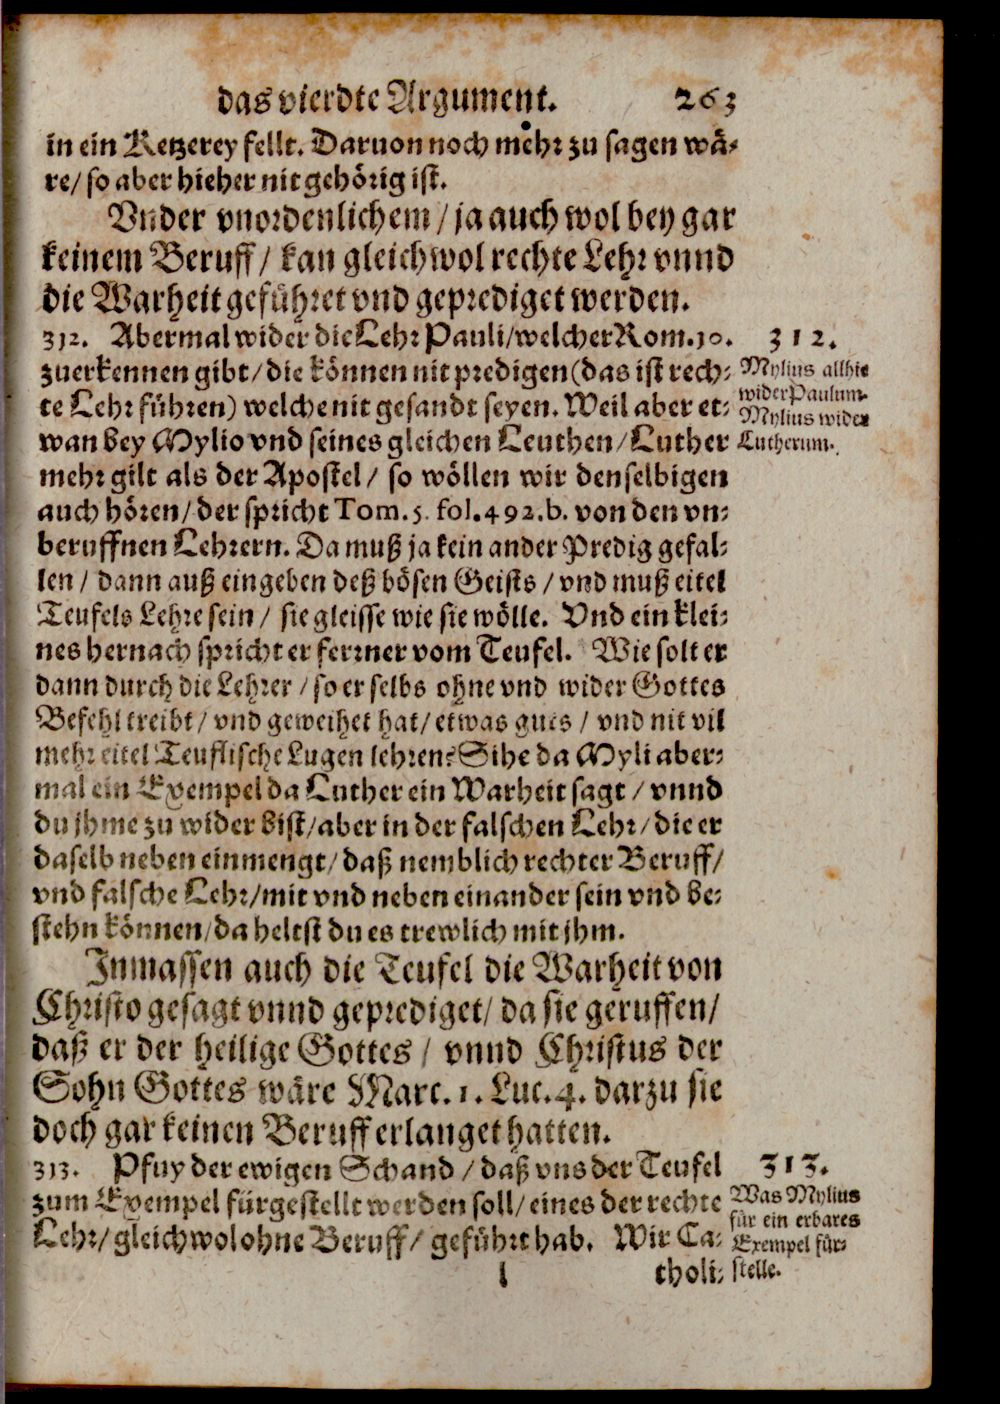 das vierdte Argument. 263
in ein Ketzerey fellt. Daruon noch mehr zu sagen wä-
re/ so aber hieher nit gehörig ist.
Vnder vnordenlichem / ja auch wol bey gar
keinem Beruff / kan gleichwol rechte Lehr vnnd
die Warheit geführet vnd geprediget werden.
312. Abermal wider die Lehr Pauli/welcher Rom.10.
zuerkennen gibt/die können nit predigen(das ist rech-
te Lehr führen) welche nit gesandt seyen. Weil aber et-
wan bey Mylio vnd seines gleichen Leuthen/Luther
mehr gilt als der Apostel / so wöllen wir denselbigen
auch hören/der spricht Tom. 5. fol. 492.b. von den vn-
beruffnen Lehrern. Da muß ja kein ander Predig gefal-
len / dann auß eingeben deß bösen Geists / vnd muß eitel
Teufels Lehre sein / sie gleisse wie sie wölle. Vnd ein klei-
nes hernach spricht er ferrner vom Teufel. Wie solt er
dann durch die Lehrer / so er selbs ohne vnd wider Gottes
Befehl treibt/ vnd geweihet hat/etwas guts / vnd nit vil
mehr eitel Teuflische Lugen lehren? Sihe da Myli aber-
mal ein Exempel da Luther ein Warheit sagt / vnnd
du jhme zu wider bist/aber in der falschen Lehr/die er
daselb neben einmengt/daß nemblich rechter Beruff/
vnd falsche Lehr/mit vnd neben einander sein vnd be-
stehn können/da heltst du es trewlich mit jhm.
Inmassen auch die Teufel die Warheit von
Christo gesagt vnnd geprediget/ da sie geruffen/
daß er der heilige Gottes / vnnd Christus der
Sohn Gottes wäre Marc. 1. Luc. 4. darzu sie
doch gar keinen Beruff erlanget hatten.
313. Pfuy der ewigen Schand / daß vns der Teufel
zum Exempel fürgestellt werden soll/ eines der rechte
Lehr/gleichwol ohne Beruff/ geführt hab. Wir Ca-
l tholi-
312.
Mylius allhie
wider Paulum.
Mylius wider
Lutherum.
313.
Was Mylius
für ein erbares
Exempel für-
stelle.